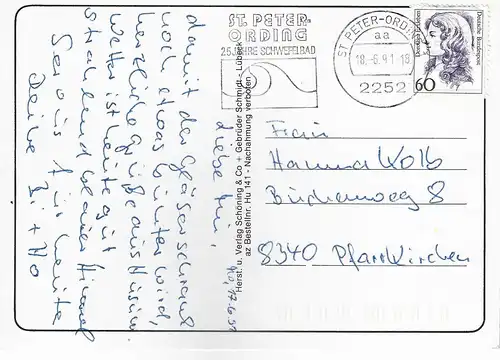 ST. PETER-
ORDING
25 JAHRE SCHWEFELBAD
ST PETER-ORDING
aa
18.-6.91-18
2252
Deutsche Bundespost
60
Frau
Hanna Kolb
8
8340 Pfarrkirchen
Herst. u. Verlag Schöning & Co + Gebrüder Schmidt - Lübeck
az Bestellnr. Hu 141 - Nachahmung verboten
17.6.91
Liebe
damit der Gläserschrank
noch etwas bunter wird,
herzliche Grüße aus Husum
Wetter ist heute gut
strahlend blauer Himmel
So das für heute
Deine